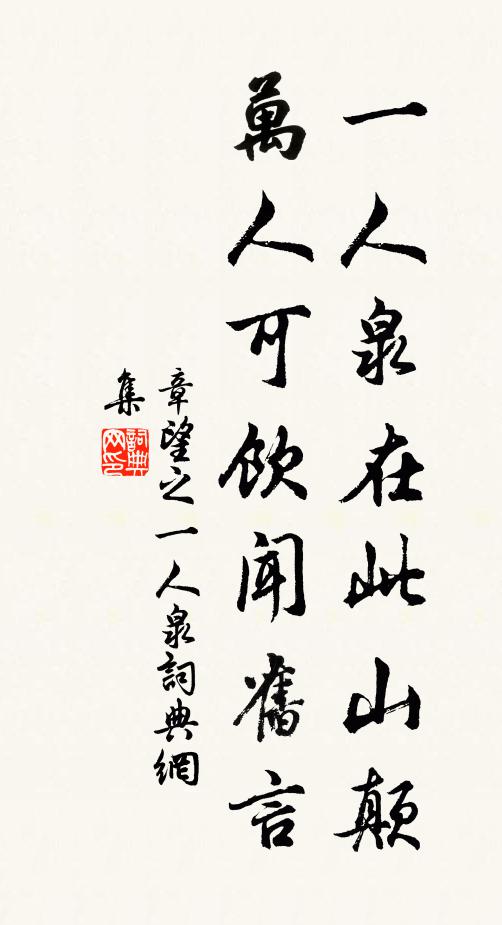 一人泉在此山顛
萬人可飲聞舊言
章望之一人泉詞典網
集
詞典網印